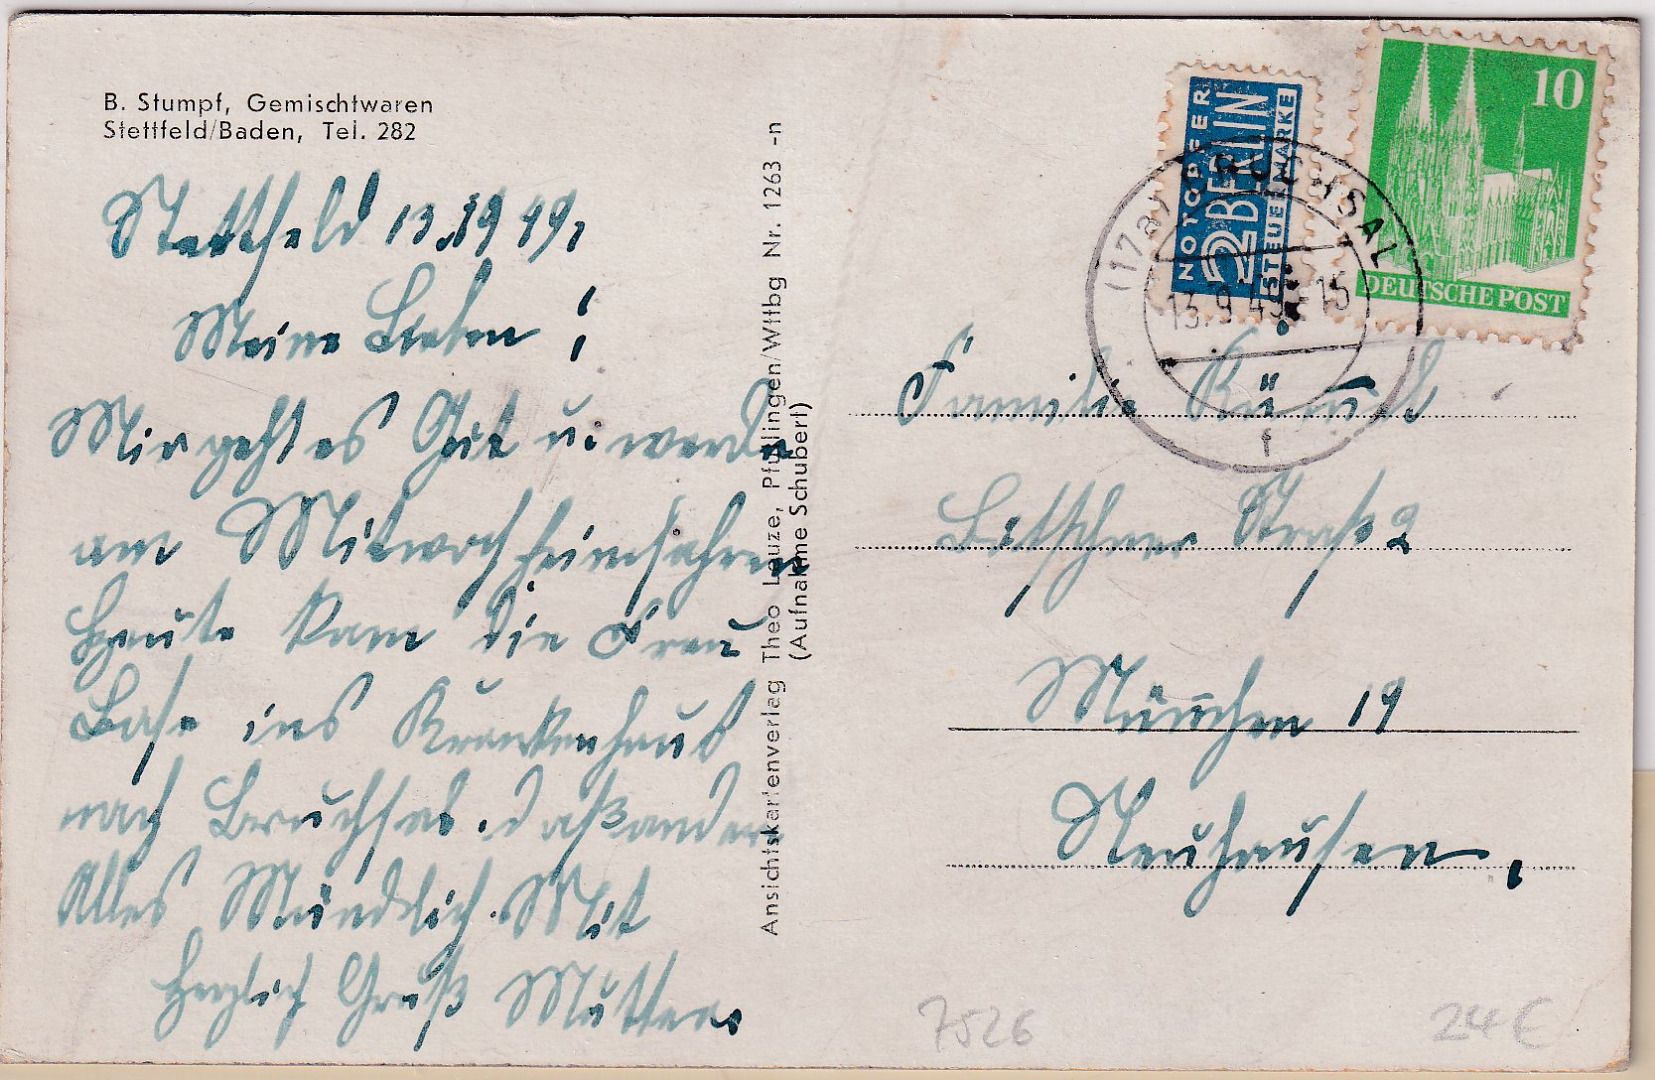 B. Stumpf, Gemischtwaren
Stettfeld/Baden, Tel. 282
Stettfeld 13.9 49,
Meine Lieben !
Mir geht es Gut u. werde
am Mitwoch heimfahren
Heute kam die Frau
Base ins Krankenhaus
nach Bruchsal. daß andere
Alles Mündlich. Mit
Herzlich Gruß Mutter
Ansichtskartenverlag Theo Leuze, Pfullingen/Wttbg Nr. 1263 -n
(Aufnahme Schubert)
NOTOPFER
2 BERLIN
STEUERMARKE
10
DEUTSCHE POST
(17a) BRUCHSAL
13.9.49.-15
f
Familie
Straße 2
München 19
Neuhausen,
7526
24 €